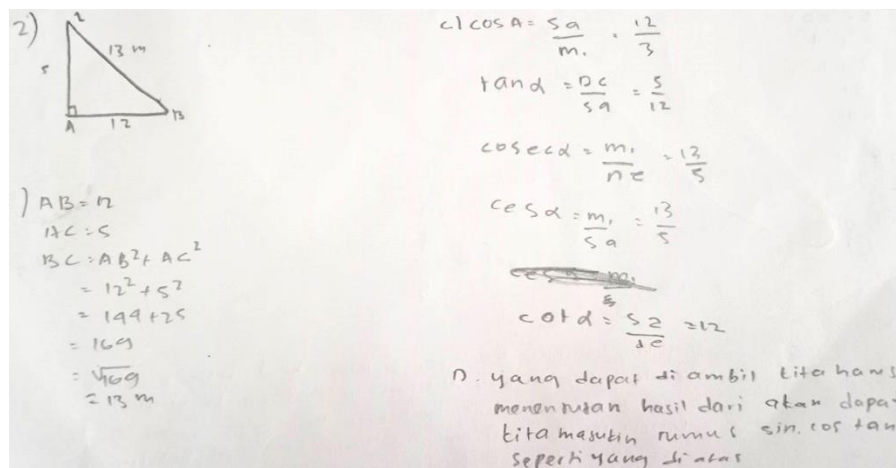 2)
2
13 m
5
A
12
B
) AB = 12
AC = 5
BC = AB² + AC²
= 12² + 5²
= 144 + 25
= 169
= √169
= 13 m
c) cos A = sa/mi = 12/3
tan α = De/sa = 5/12
cosec α = mi/ne = 13/5
ces α = mi/sa = 13/5
cot α = sa/de = 12
D. yang dapat di ambil kita harus
menentukan hasil dari akan dapa
kita masukin rumus sin. cos tan
seperti yang di atas